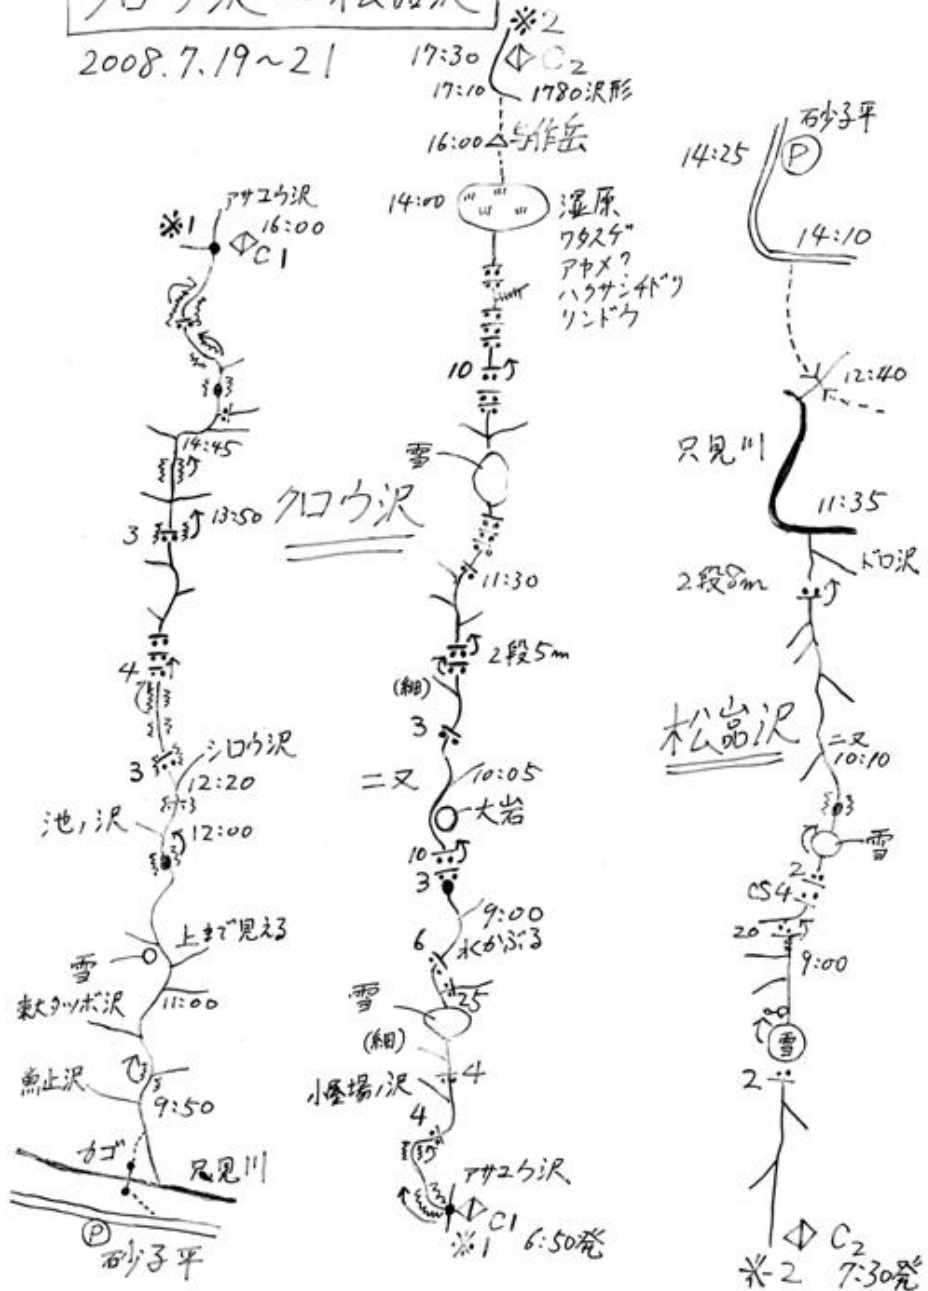 クロウ沢
松嵓沢
2008.7.19～21
アサユウ沢
※1
16:00
C1
14:45
3
13:50
4
3
シロウ沢
12:20
池ノ沢
12:00
上まで見える
雪
東大タツボ沢
11:00
魚止沢
9:50
カゴ
只見川
P
砂子平
※2
17:30
C2
17:10
1780沢形
16:00
与作岳
14:00
湿原
ワタスゲ
アヤメ?
ハクサンチドリ
リンドウ
10
雪
クロウ沢
11:30
2段5m
(細)
3
10:05
二又
大岩
10
3
9:00
6
水かぶる
25
雪
(細)
4
小屋場ノ沢
4
アサユウ沢
C1
※1
6:50発
砂子平
14:25
P
14:10
12:40
只見川
11:35
ドロ沢
2段8m
松嵓沢
二又
10:10
雪
2
CS4
20
9:00
雪
2
C2
※2
7:30発